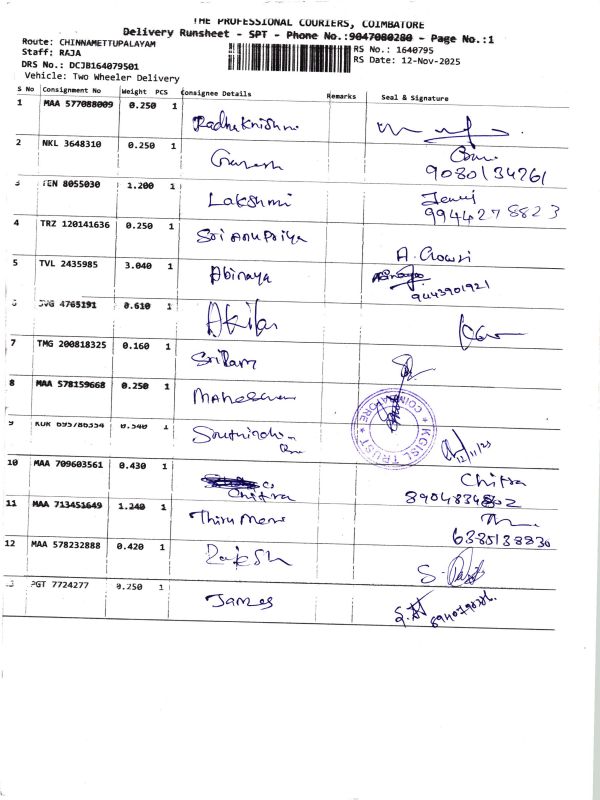 THE PROFESSIONAL COURIERS, COIMBATORE
Delivery Runsheet - SPT - Phone No.:9047080280 - Page No.:1
Route: CHINNAMETTUPALAYAM
Staff: RAJA
RS No.: 1640795
DRS No.: DCJB164079501
RS Date: 12-Nov-2025
Vehicle: Two Wheeler Delivery
S No Consignment No Weight PCS Consignee Details Remarks Seal & Signature
1 MAA 577088009 0.250 1
Radha Krishna
2 NKL 3648310 0.250 1
Ganesh
9080134261
3 TEN 8055030 1.200 1
Lakshmi
9944278823
4 TRZ 120141636 0.250 1
Sri Anu Priya
A. Gowri
5 TVL 2435985 3.040 1
Abinaya
9443901921
6 SVG 4765191 0.610 1
Akila
7 TMG 200818325 0.160 1
Sri Ram
8 MAA 578159668 0.250 1
KGISL TRUST COIMBATORE
9 KUR 695786354 0.540 1
12/11/25
10 MAA 709603561 0.430 1
Chitra
Chitra
11 MAA 713451649 1.240 1
6385138830
12 MAA 578232888 0.420 1
Rakesh
13 PGT 7724277 0.250 1
James